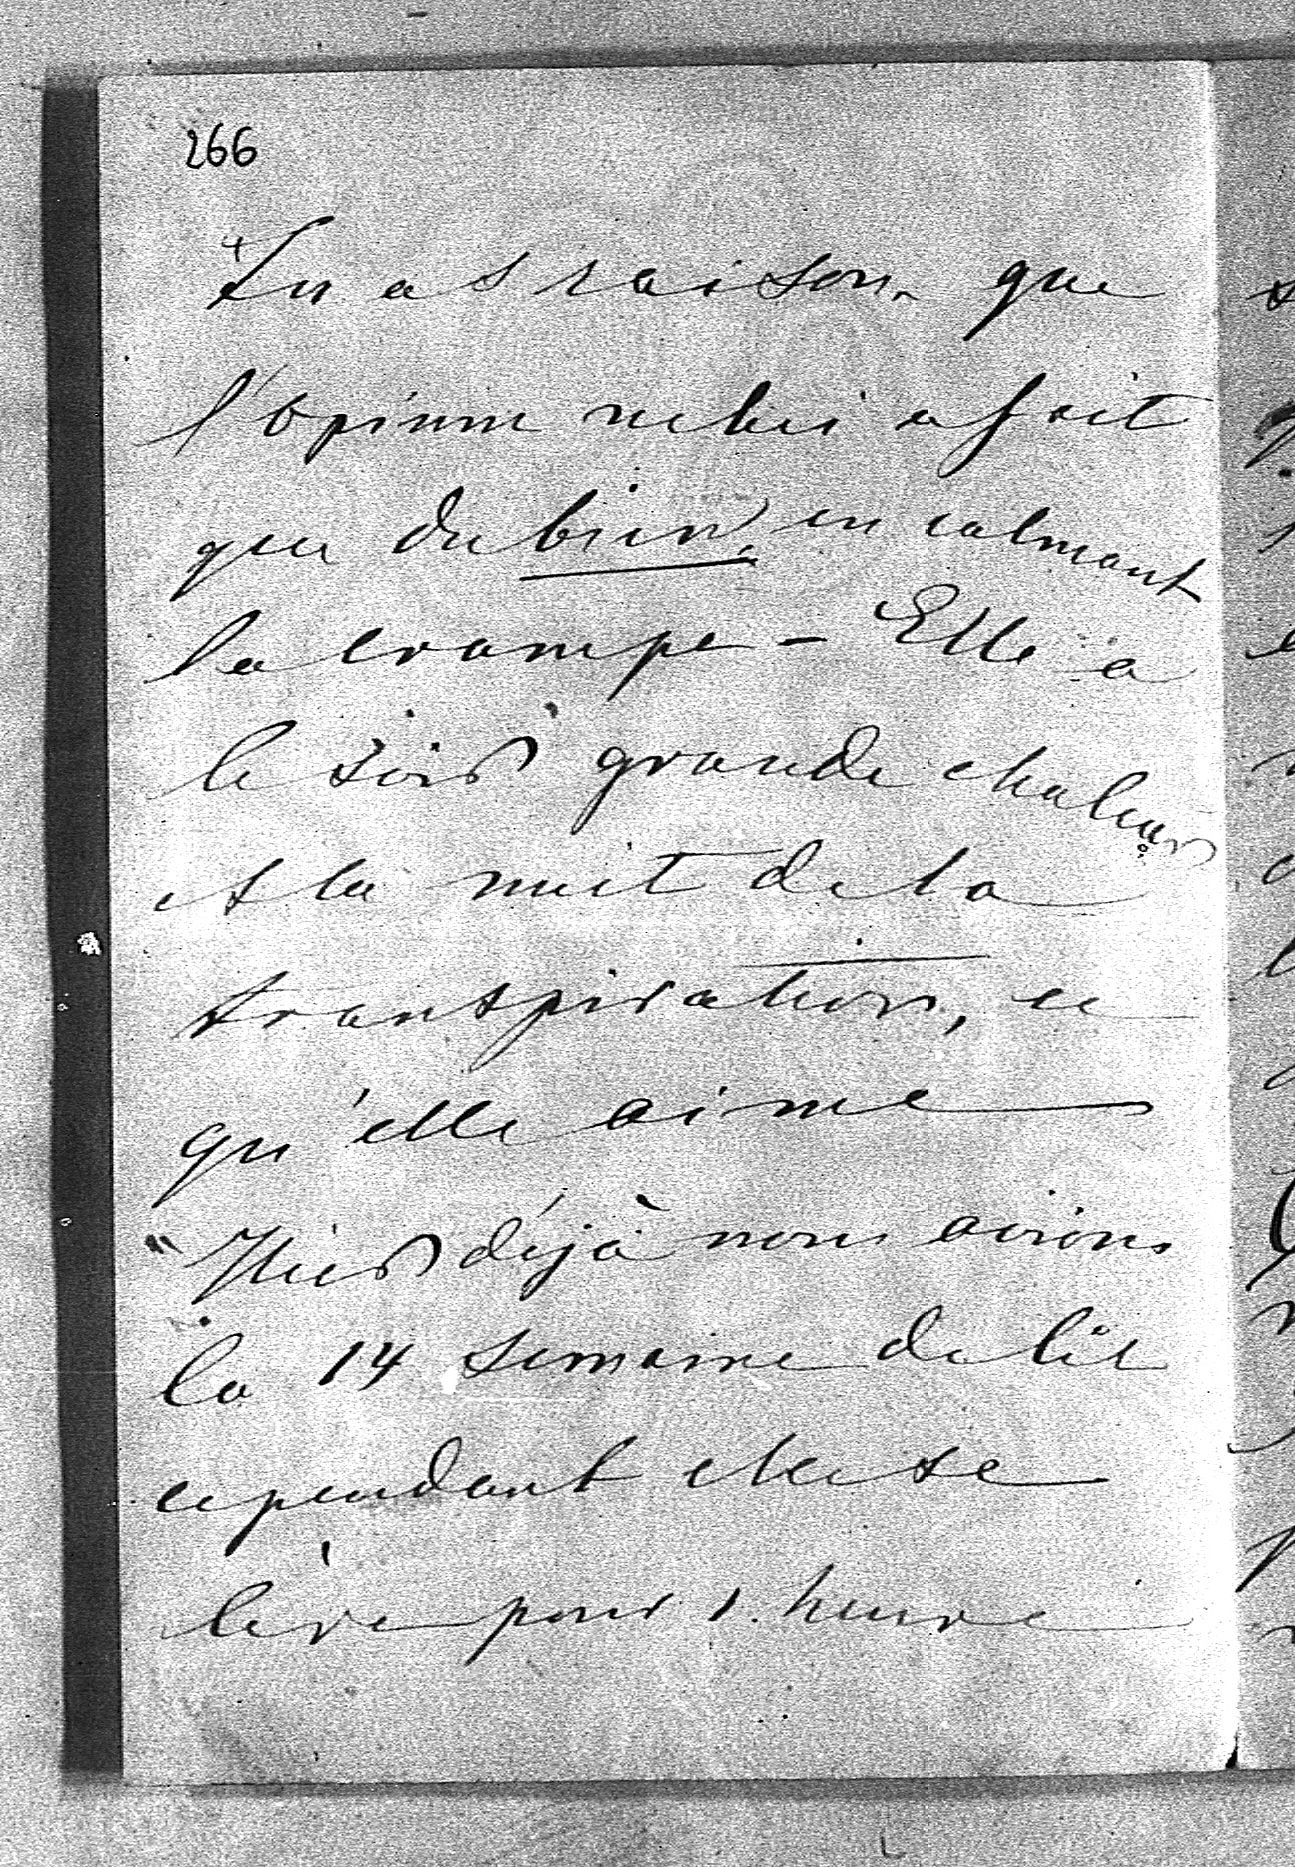 266
Tu as raison que
l'opium ne lui a fait
que du bien, en calmant
la crampe - Elle a
le soir grande chaleur
et la nuit de la
transpiration, ce
qu'elle aime
"Hier déjà nous avions
la 14 semaine de lit
cependant elle se
lève pour 1. heure